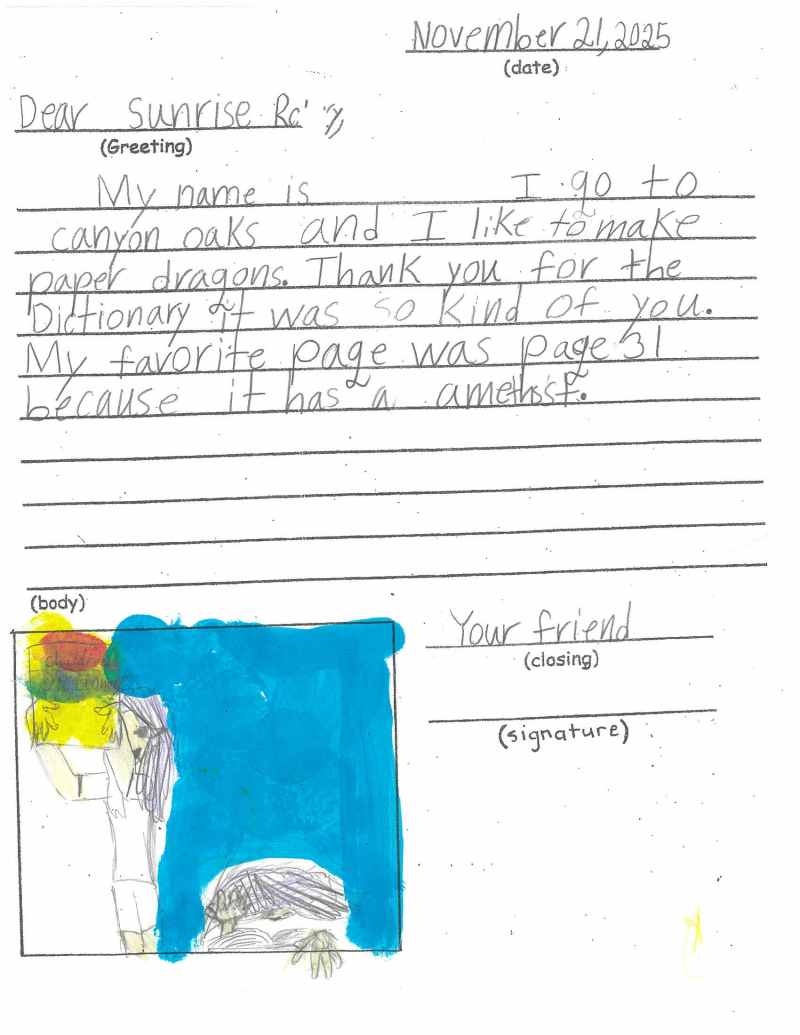 November 21, 2025
(date)
Dear Sunrise
(Greeting)
My name is I go to
canyon oaks and I like to make
paper dragons. Thank you for the
Dictionary it was so kind of you.
My favorite page was page 31
because it has a amethst.
(body)
Your friend
(closing)
(signature)